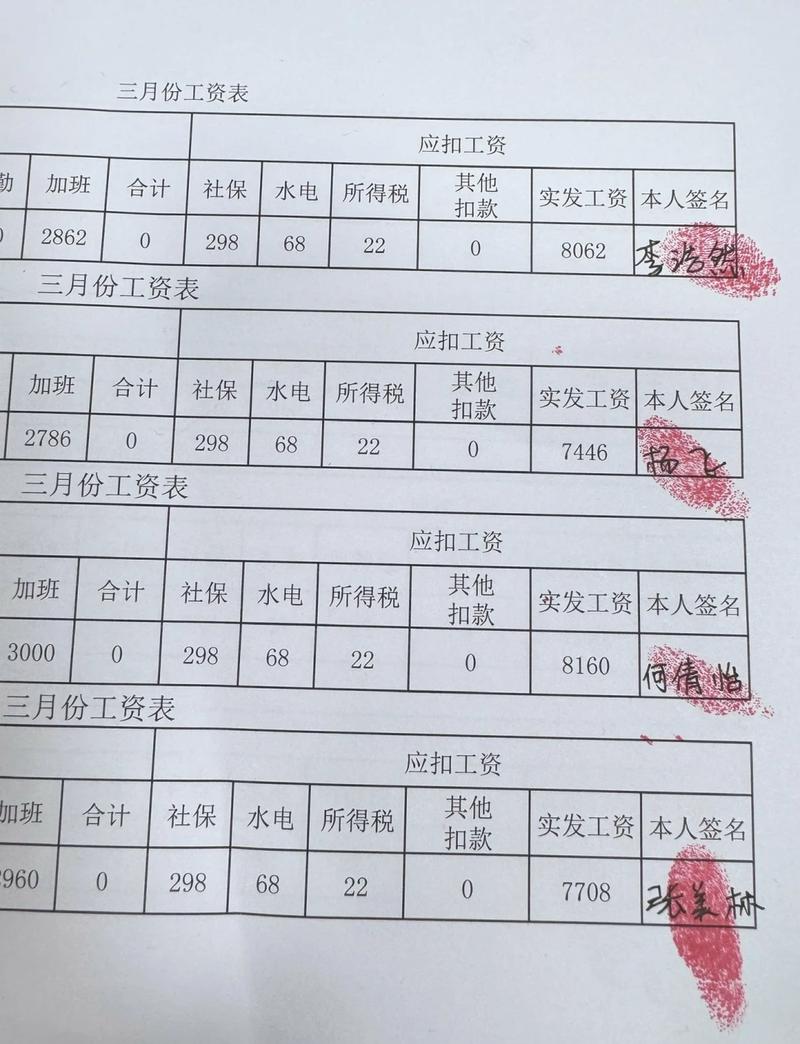 三月份工资表
应扣工资
加班 合计 社保 水电 所得税 其他扣款 实发工资 本人签名
2862 0 298 68 22 0 8062 李浩然
三月份工资表
应扣工资
加班 合计 社保 水电 所得税 其他扣款 实发工资 本人签名
2786 0 298 68 22 0 7446 杨飞
三月份工资表
应扣工资
加班 合计 社保 水电 所得税 其他扣款 实发工资 本人签名
3000 0 298 68 22 0 8160 何倩怡
三月份工资表
应扣工资
加班 合计 社保 水电 所得税 其他扣款 实发工资 本人签名
960 0 298 68 22 0 7708 张美林